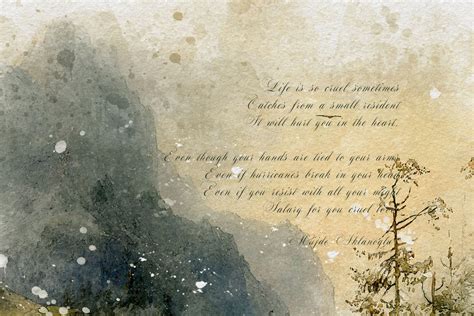 Life is so cruel sometimes
Catches from a small resident
It will hurt you in the heart.
Even though your hands are tied to your arms
Even if hurricanes break in your head
Even if you resist with all your might
Salary for you cruel